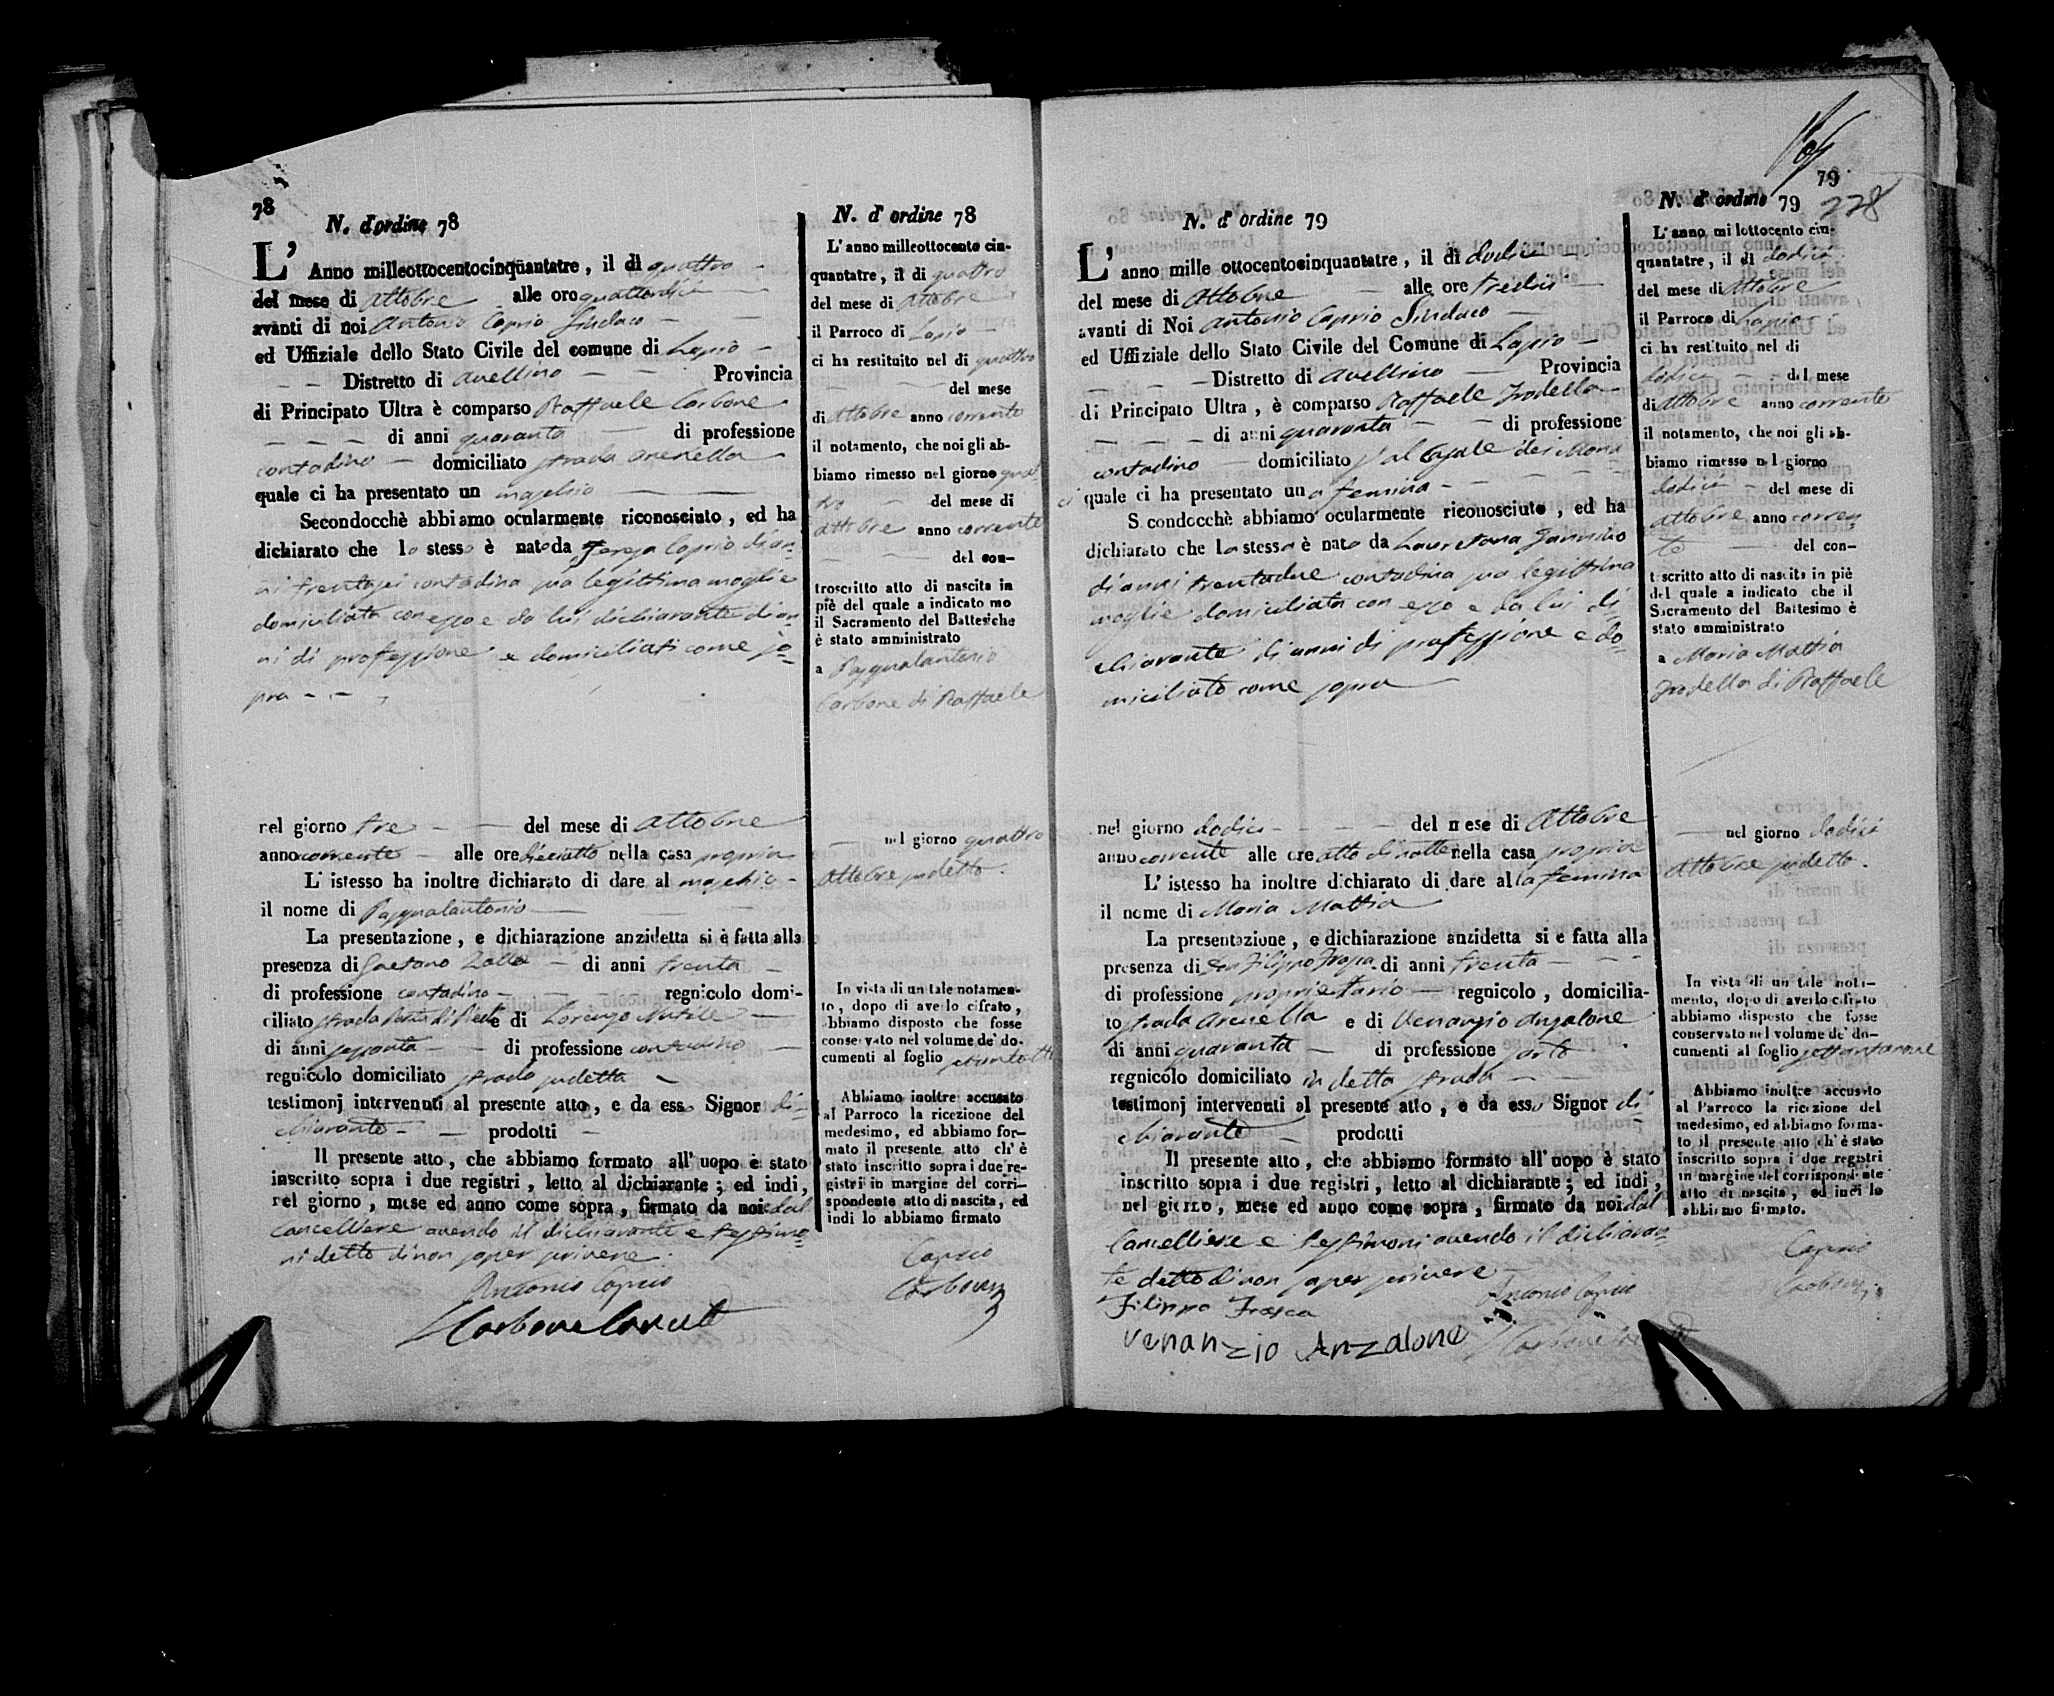 78
N. d'ordine 78
L' Anno milleottocentocinquantatre, il di quattro
del mese di Ottobre alle ore quattordici
avanti di noi Antonio Caprio Sindaco
ed Uffiziale dello Stato Civile del comune di Lapio
Distretto di Avellino Provincia
di Principato Ultra è comparso Raffaele Carbone
di anni quaranta di professione
contadino domiciliato strada arenella
quale ci ha presentato un maschio
Secondocchè abbiamo ocularmente riconosciuto, ed ha
dichiarato che lo stesso è nato da Teresa Caprio di an=
ni trentasei contadina sua legittima moglie
domiciliata con esso e da lui dichiarante di an=
ni di professione e domiciliati come so=
pra
nel giorno tre del mese di Ottobre
anno corrente alle ore dieciotto nella casa propria
L'istesso ha inoltre dichiarato di dare al maschio
il nome di Pasqualantonio
La presentazione, e dichiarazione anzidetta si è fatta alla
presenza di Gaetano Zollo di anni trenta
di professione contadino regnicolo domi-
ciliato strada e di Lorenzo
di anni sessanta di professione contadino
regnicolo domiciliato strada sudetta
testimonj intervenuti al presente atto, e da esso Signor di=
chiarante prodotti
Il presente atto, che abbiamo formato all' uopo è stato
inscritto sopra i due registri, letto al dichiarante; ed indi,
nel giorno, mese ed anno come sopra, firmato da noi dal
Cancelliere avendo il dichiarante e testimo=
ni detto di non saper scrivere
Antonio Caprio
Carbone
N. d' ordine 78
L' anno milleottocento cin-
quantatre, il di quattro
del mese di Ottobre
il Parroco di Lapio
ci ha restituito nel di quattro
del mese
di Ottobre anno corrente
il notamento, che noi gli ab-
biamo rimesso nel giorno quat
tro del mese di
Ottobre anno corrente
del con-
troscritto atto di nascita in
piè del quale a indicato mo
il Sacramento del Battesiche
è stato amministrato
a Pasqualantonio
Carbone di Raffaele
nel giorno quattro
Ottobre sudetto.
In vista di un tale notamen-
to, dopo di averlo cifrato,
abbiamo disposto che fosse
conservato nel volume de' do-
cumenti al foglio
Abbiamo inoltre accusato
al Parroco la ricezione del
medesimo, ed abbiamo for-
mato il presente atto ch' è
stato inscritto sopra i due re-
gistri in margine del corri-
spondente atto di nascita, ed
indi lo abbiamo firmato
Caprio
Carbone
79
228
N. d' ordine 79
L' anno mille ottocentocinquantatre, il di dodici
del mese di Ottobre alle ore tredici
avanti di Noi Antonio Caprio Sindaco
ed Uffiziale dello Stato Civile del Comune di Lapio
Distretto di Avellino Provincia
di Principato Ultra, è comparso Raffaele
di anni quaranta di professione
contadino domiciliato
quale ci ha presentato una femina
Secondocchè abbiamo ocularmente riconosciuto, ed ha
dichiarato che la stessa è nata da Lauretana
di anni trentadue contadina sua legittima
moglie domiciliata con esso e da lui di=
chiarante di anni di professione e do=
miciliato come sopra
nel giorno dodici del mese di Ottobre
anno corrente alle ore otto di notte nella casa propria
L' istesso ha inoltre dichiarato di dare alla femina
il nome di Maria Mattia
La presentazione, e dichiarazione anzidetta si e fatta alla
presenza di Don Filippo Frasca di anni trenta
di professione proprietario regnicolo, domicilia-
to strada Arenella e di Venanzio Anzalone
di anni quaranta di professione sarto
regnicolo domiciliato in detta strada
testimonj intervenuti al presente atto, e da esso Signor di=
chiarante prodotti
Il presente atto, che abbiamo formato all' uopo è stato
inscritto sopra i due registri, letto al dichiarante; ed indi,
nel giorno, mese ed anno come sopra, firmato da noi dal
Cancelliere e testimoni avendo il dichiaran=
te detto di non saper scrivere
Antonio Caprio
Filippo Frasca
Venanzio Anzalone
Carbone
N. d' ordine 79
L' anno millottocento cin-
quantatre, il di dodici
del mese di Ottobre
il Parroco di Lapio
ci ha restituito nel di
dodici del mese
di Ottobre anno corrente
il notamento, che noi gli ab-
biamo rimesso nel giorno
dodici del mese di
Ottobre anno corren=
te del con-
troscritto atto di nascita in piè
del quale a indicato che il
Sacramento del Battesimo è
stato amministrato
a Maria Mattia
di Raffaele
nel giorno dodici
Ottobre sudetto.
In vista di un tale nota-
mento, dopo di averlo cifrato
abbiamo disposto che fosse
conservato nel volume de' do-
cumenti al foglio settantanove
Abbiamo inoltre accusato
al Parroco la ricezione del
medesimo, ed abbiamo forma-
to il presente atto ch' è stato
inscritto sopra i due registri
in margine del corrispondente
atto di nascita, ed indi lo
abbiamo firmato.
Caprio